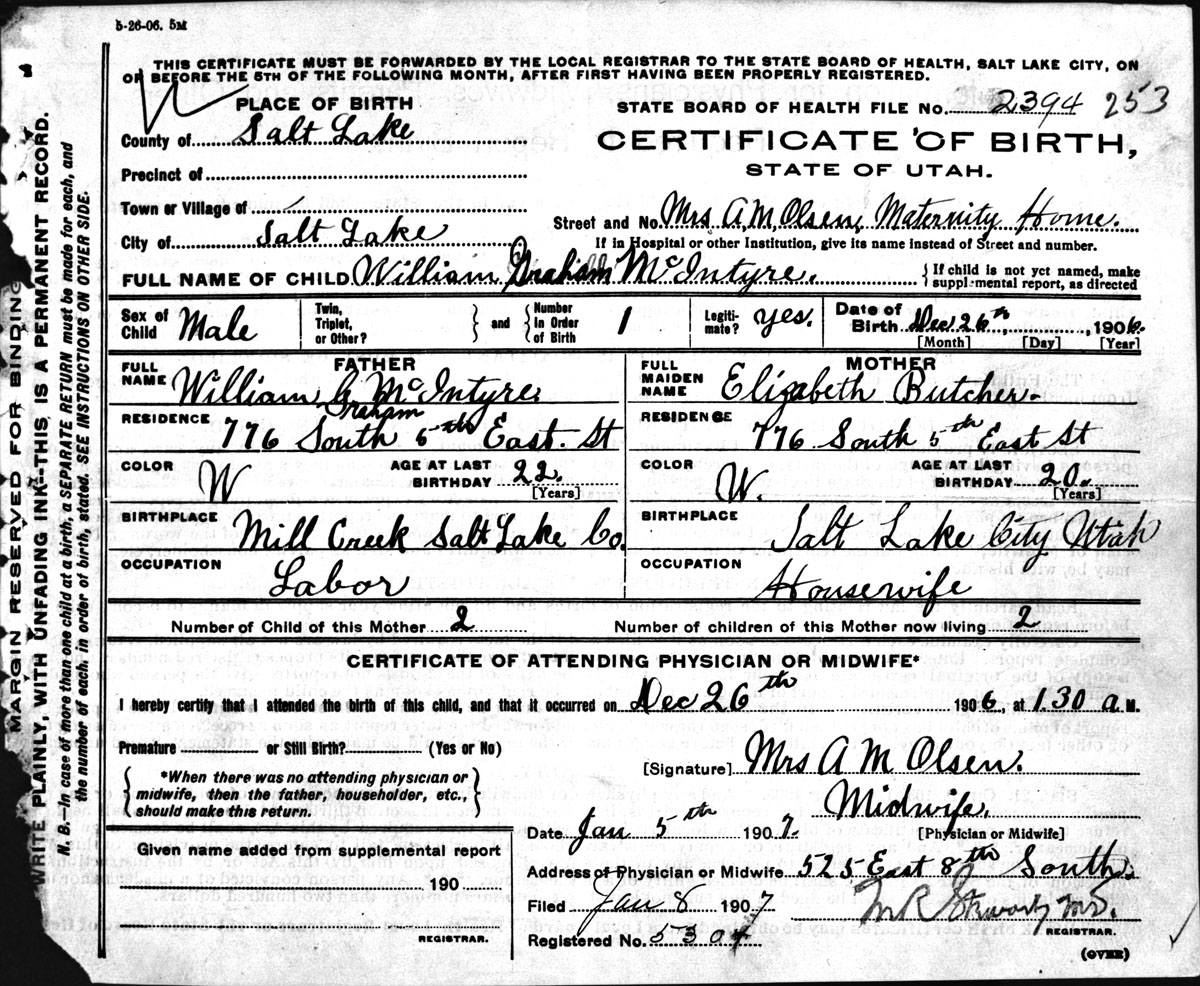 5-26-06. 5M
THIS CERTIFICATE MUST BE FORWARDED BY THE LOCAL REGISTRAR TO THE STATE BOARD OF HEALTH, SALT LAKE CITY, ON
OR BEFORE THE 5TH OF THE FOLLOWING MONTH, AFTER FIRST HAVING BEEN PROPERLY REGISTERED.
PLACE OF BIRTH
STATE BOARD OF HEALTH FILE No. 2394 253
County of Salt Lake
CERTIFICATE OF BIRTH,
STATE OF UTAH.
Precinct of
Town or Village of
Street and No. Mrs A,M,Olsen, Maternity Home.
City of Salt Lake
If in Hospital or other Institution, give its name instead of Street and number.
FULL NAME OF CHILD William Graham McIntyre.
{ If child is not yet named, make
supplemental report, as directed
Sex of Child Male
Twin, Triplet, or Other? } and { Number in Order of Birth 1
Legitimate? yes.
Date of Birth Dec 26th, 1906.
[Month] [Day] [Year]
FATHER
FULL NAME William G McIntyre.
Graham
RESIDENCE 776 South 5th East. St
COLOR W
AGE AT LAST BIRTHDAY 22.
[Years]
BIRTHPLACE Mill Creek Salt Lake Co.
OCCUPATION Labor
MOTHER
FULL MAIDEN NAME Elizabeth Butcher.
RESIDENCE 776 South 5th East St
COLOR W.
AGE AT LAST BIRTHDAY 20.
[Years]
BIRTHPLACE Salt Lake City Utah
OCCUPATION Housewife
Number of Child of this Mother 2 Number of children of this Mother now living 2
CERTIFICATE OF ATTENDING PHYSICIAN OR MIDWIFE*
I hereby certify that I attended the birth of this child, and that it occurred on Dec 26th 1906, at 1.30 a M.
Premature or Still Birth? (Yes or No)
[Signature] Mrs A M Olsen.
{ *When there was no attending physician or
midwife, then the father, householder, etc.,
should make this return. }
Midwife.
[Physician or Midwife]
Date Jan 5th 1907.
Given name added from supplemental report
190
REGISTRAR.
Address of Physician or Midwife 525 East 8th South.
Filed Jan 8 1907
REGISTRAR.
Registered No. 5304
(OVER)
MARGIN RESERVED FOR BINDING
WRITE PLAINLY, WITH UNFADING INK—THIS IS A PERMANENT RECORD.
N. B.—In case of more than one child at a birth, a SEPARATE RETURN must be made for each, and
the number of each, in order of birth, stated. SEE INSTRUCTIONS ON OTHER SIDE.